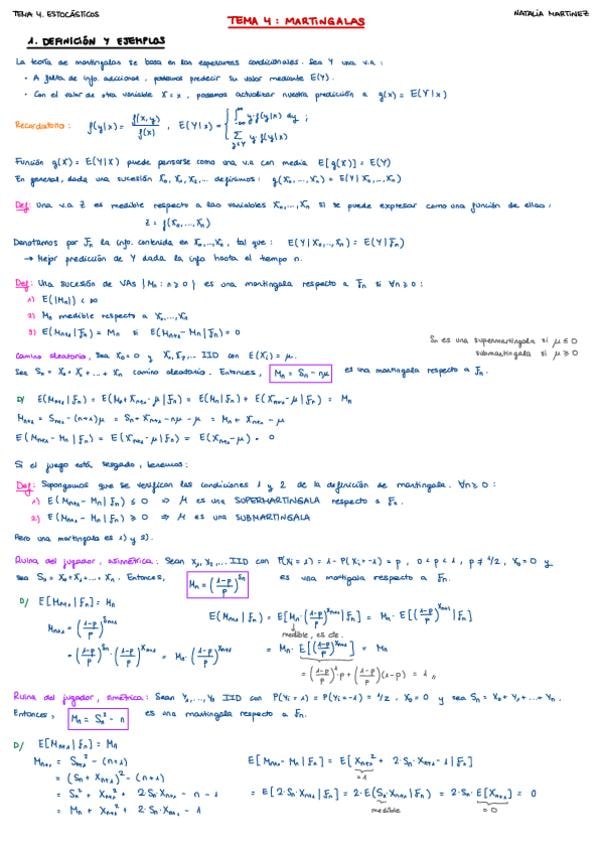 TEMA 4. ESTOCÁSTICOS
NATALIA MARTINEZ
TEMA 4: MARTINGALAS
1. DEFINICIÓN Y EJEMPLOS
La teoría de martingalas se basa en las esperanzas condicionales. Sea Y una v.a:
· A falta de info. adicional, podemos predecir su valor mediante E(Y).
· Con el valor de otra variable X=x, podemos actualizar nuestra predicción a g(x) = E(Y|x)
Recordatorio: f(y|x) = f(x,y)/f(x), E(Y|x) = { ∫_{-∞}^{∞} y·f(y|x) dy ; Σ_{y∈Y} y·f(y|x)
Función g(X) = E(Y|X) puede pensarse como una v.a con media E[g(X)] = E(Y)
En general, dada una sucesión X₀, X₁, X₂,... definimos: g(X₀,...,Xₙ) = E(Y|X₀,...,Xₙ)
Def: Una v.a Z es medible respecto a las variables X₀,...,Xₙ si se puede expresar como una función de ellas:
Z = f(X₀,...,Xₙ)
Denotamos por Fₙ la info. contenida en X₀,...,Xₙ, tal que: E(Y|X₀,...,Xₙ) = E(Y|Fₙ)
→ Mejor predicción de Y dada la info hasta el tiempo n.
Def: Una sucesión de VAs {Mₙ: n≥0} es una martingala respecto a Fₙ si ∀n≥0:
1) E(|Mₙ|) < ∞
2) Mₙ medible respecto a X₀,...,Xₙ
3) E(Mₙ₊₁|Fₙ) = Mₙ si E(Mₙ₊₁-Mₙ|Fₙ) = 0
Sₙ es una supermartingala si μ ≤ 0
submartingala si μ ≥ 0
Camino aleatorio, Sea X₀=0 y X₁, X₂,... IID con E(Xᵢ) = μ.
Sea Sₙ = X₀ + X₁ + ... + Xₙ camino aleatorio. Entonces, Mₙ = Sₙ - nμ es una martingala respecto a Fₙ.
D/ E(Mₙ₊₁|Fₙ) = E(Mₙ + Xₙ₊₁ - μ|Fₙ) = E(Mₙ|Fₙ) + E(Xₙ₊₁ - μ|Fₙ) = Mₙ
Mₙ₊₁ = Sₙ₊₁ - (n+1)μ = Sₙ + Xₙ₊₁ - nμ - μ = Mₙ + Xₙ₊₁ - μ
E(Mₙ₊₁ - Mₙ|Fₙ) = E(Xₙ₊₁ - μ|Fₙ) = E(Xₙ₊₁ - μ) = 0
Si el juego está sesgado, tenemos:
Def: Supongamos que se verifican las condiciones 1 y 2 de la definición de martingala. ∀n≥0:
1) E(Mₙ₊₁ - Mₙ|Fₙ) ≤ 0 ⇒ M es una SUPERMARTINGALA respecto a Fₙ.
2) E(Mₙ₊₁ - Mₙ|Fₙ) ≥ 0 ⇒ M es una SUBMARTINGALA
Pero una martingala es 1) y 2).
Ruina del jugador, asimétrica: Sean X₁, X₂,... IID con P(Xᵢ=1) = 1 - P(Xᵢ=-1) = p, 0<p<1, p≠1/2, X₀=0 y
sea Sₙ = X₀+X₁+...+Xₙ. Entonces, Mₙ = ((1-p)/p)^{Sₙ} es una martigala respecto a Fₙ.
D/ E[Mₙ₊₁|Fₙ] = Mₙ
Mₙ₊₁ = ((1-p)/p)^{Sₙ₊₁}
= ((1-p)/p)^{Sₙ} · ((1-p)/p)^{Xₙ₊₁} = Mₙ · ((1-p)/p)^{Xₙ₊₁}
E(Mₙ₊₁|Fₙ) = E[Mₙ·((1-p)/p)^{Xₙ₊₁}|Fₙ] = Mₙ · E[((1-p)/p)^{Xₙ₊₁}|Fₙ]
medible, es cte.
= Mₙ · E[((1-p)/p)^{Xₙ₊₁}] = Mₙ
= ((1-p)/p)¹·p + ((1-p)/p)⁻¹(1-p) = 1
Ruina del jugador, simétrica: Sean Y₁,...,Yₙ IID con P(Yᵢ=1) = P(Yᵢ=-1) = 1/2. X₀=0 y sea Sₙ = X₀ + Y₁ + ... + Yₙ.
Entonces, Mₙ = Sₙ² - n es una martingala respecto a Fₙ.
D/ E[Mₙ₊₁|Fₙ] = Mₙ
Mₙ₊₁ = Sₙ₊₁² - (n+1)
= (Sₙ + Xₙ₊₁)² - (n+1)
= Sₙ² + Xₙ₊₁² + 2Sₙ·Xₙ₊₁ - n - 1
= Mₙ + Xₙ₊₁² + 2Sₙ·Xₙ₊₁ - 1
E[Mₙ₊₁ - Mₙ|Fₙ] = E[Xₙ₊₁² + 2·Sₙ·Xₙ₊₁ - 1|Fₙ]
=1
= E[2·Sₙ·Xₙ₊₁|Fₙ] = 2·E(Sₙ·Xₙ₊₁|Fₙ) = 2·Sₙ·E[Xₙ₊₁] = 0
medible
=0